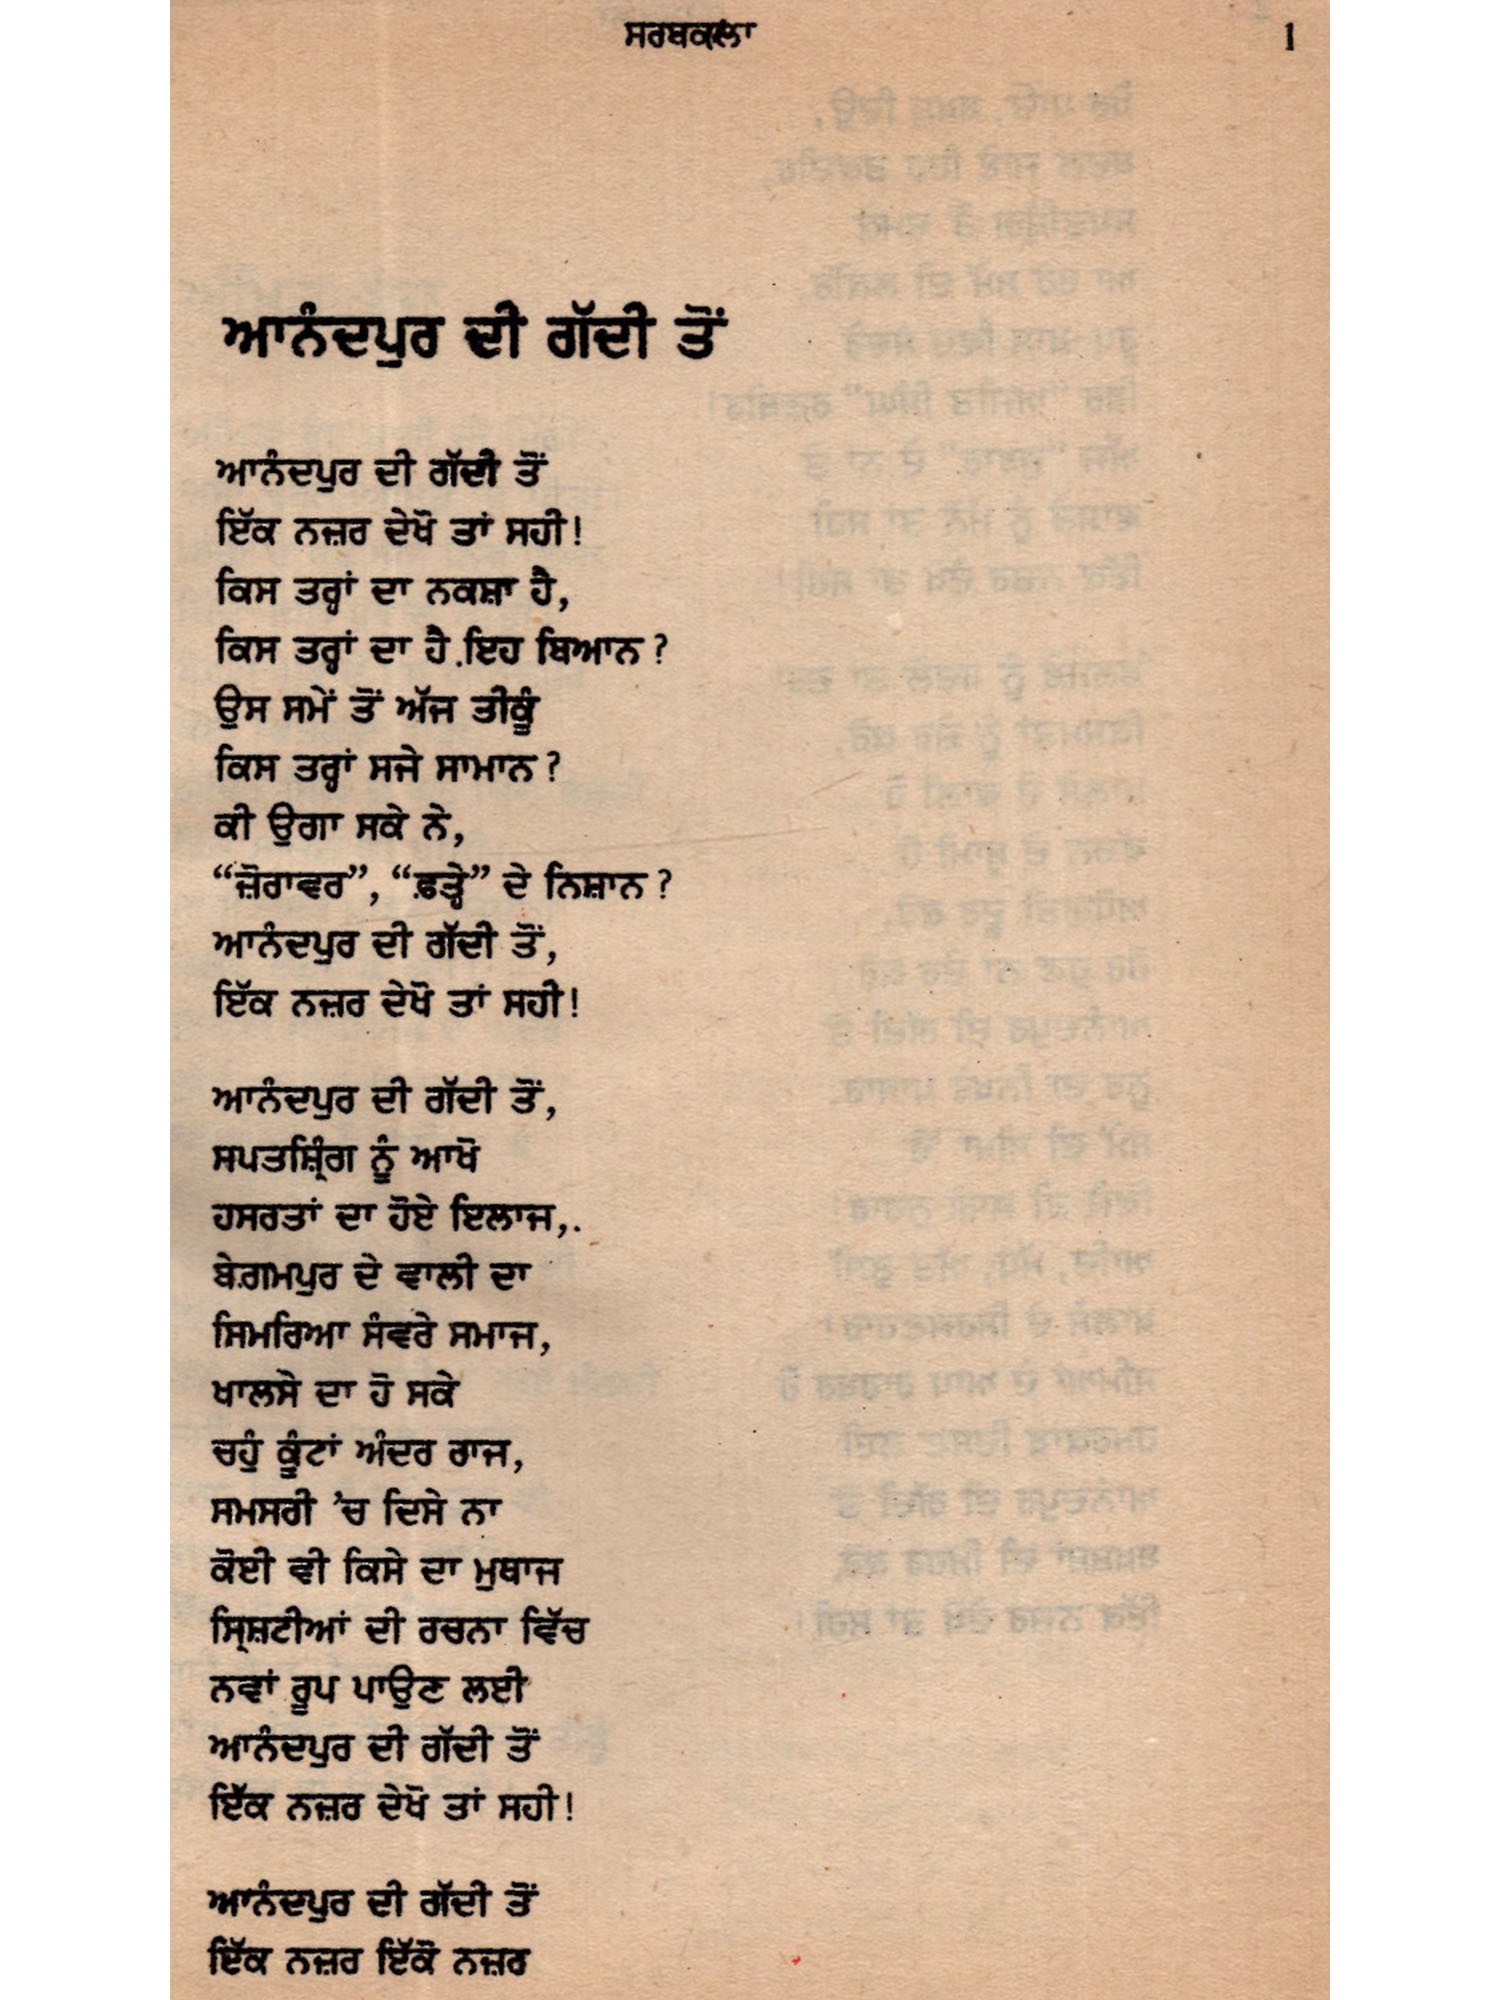 ਸਰਬਕਲਾ 1
ਆਨੰਦਪੁਰ ਦੀ ਗੱਦੀ ਤੋਂ
ਆਨੰਦਪੁਰ ਦੀ ਗੱਦੀ ਤੋਂ
ਇੱਕ ਨਜ਼ਰ ਦੇਖੋ ਤਾਂ ਸਹੀ!
ਕਿਸ ਤਰ੍ਹਾਂ ਦਾ ਨਕਸ਼ਾ ਹੈ,
ਕਿਸ ਤਰ੍ਹਾਂ ਦਾ ਹੈ ਇਹ ਬਿਆਨ?
ਉਸ ਸਮੇਂ ਤੋਂ ਅੱਜ ਤੀਕੂੰ
ਕਿਸ ਤਰ੍ਹਾਂ ਸਜੇ ਸਾਮਾਨ?
ਕੀ ਉਗਾ ਸਕੇ ਨੇ,
“ਜ਼ੋਰਾਵਰ”, “ਫ਼ਤ੍ਹੇ” ਦੇ ਨਿਸ਼ਾਨ?
ਆਨੰਦਪੁਰ ਦੀ ਗੱਦੀ ਤੋਂ,
ਇੱਕ ਨਜ਼ਰ ਦੇਖੋ ਤਾਂ ਸਹੀ!
ਆਨੰਦਪੁਰ ਦੀ ਗੱਦੀ ਤੋਂ,
ਸਪਤਸ਼੍ਰਿੰਗ ਨੂੰ ਆਖੋ
ਹਸਰਤਾਂ ਦਾ ਹੋਏ ਇਲਾਜ,
ਬੇਗ਼ਮਪੁਰ ਦੇ ਵਾਲੀ ਦਾ
ਸਿਮਰਿਆ ਸੰਵਰੇ ਸਮਾਜ,
ਖਾਲਸੇ ਦਾ ਹੋ ਸਕੇ
ਚਹੁੰ ਕੂੰਟਾਂ ਅੰਦਰ ਰਾਜ,
ਸਮਸਰੀ ’ਚ ਦਿਸੇ ਨਾ
ਕੋਈ ਵੀ ਕਿਸੇ ਦਾ ਮੁਥਾਜ
ਸ੍ਰਿਸ਼ਟੀਆਂ ਦੀ ਰਚਨਾ ਵਿੱਚ
ਨਵਾਂ ਰੂਪ ਪਾਉਣ ਲਈ
ਆਨੰਦਪੁਰ ਦੀ ਗੱਦੀ ਤੋਂ
ਇੱਕ ਨਜ਼ਰ ਦੇਖੋ ਤਾਂ ਸਹੀ!
ਆਨੰਦਪੁਰ ਦੀ ਗੱਦੀ ਤੋਂ
ਇੱਕ ਨਜ਼ਰ ਇੱਕੋ ਨਜ਼ਰ